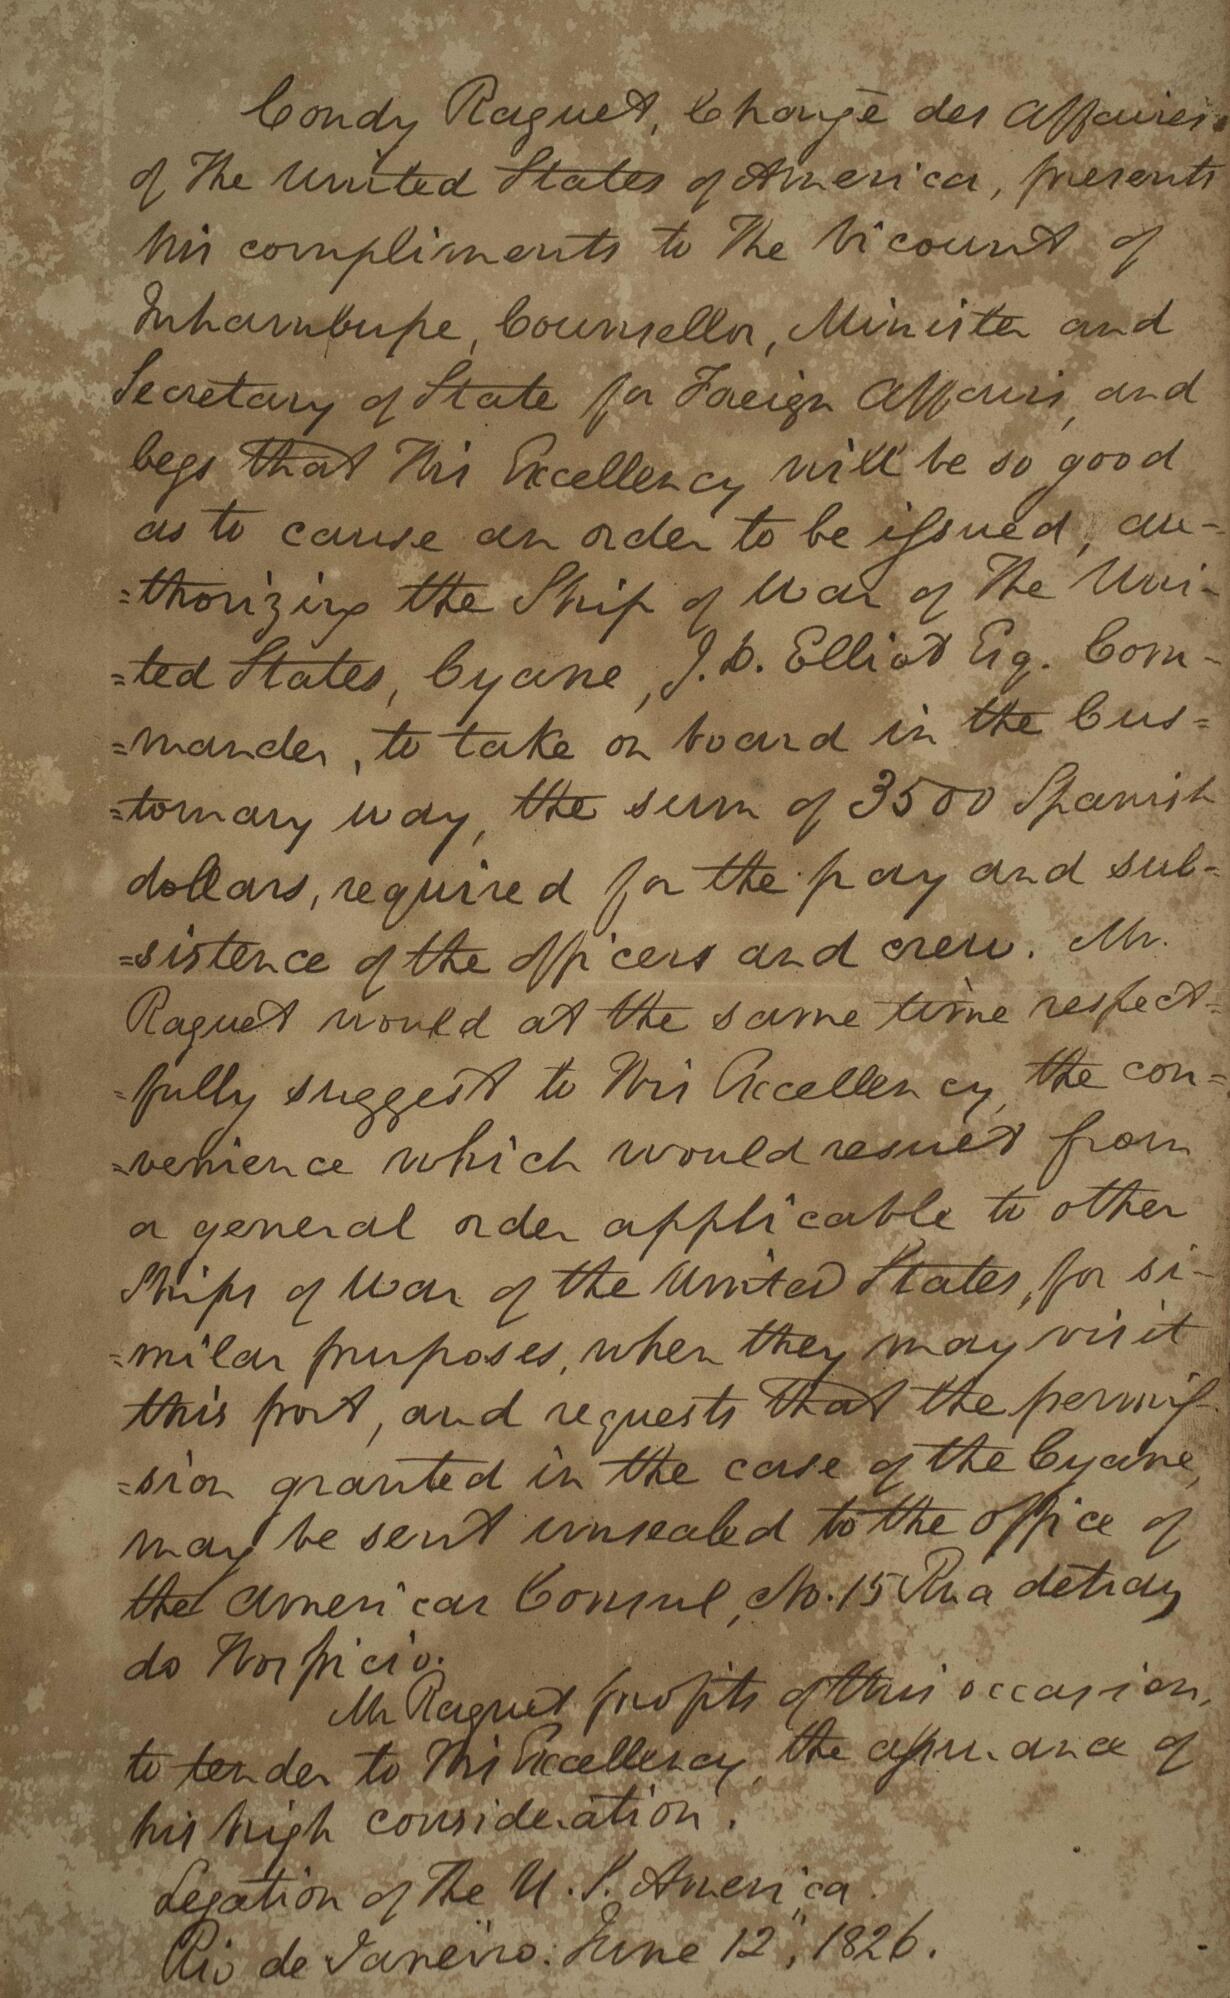 Condy Raguet, Chargē des Affaires
of The United States of America, presents
his compliments to The Vicount of
Inhambupe, Counsellor, Minister and
Secretary of State for Foreign Affairs, and
begs that His Excellency will be so good
as to cause an order to be issued, au-
=thorizing the Ship of War of The Uni-
=ted States, Cyane, J. D. Elliot Esq. Com-
=mander, to take on board in the Cus=
=tomary way, the sum of 3500 Spanish
dollars, required for the pay and sub=
=sistence of the officers and crew. Mr.
Raguet would at the same time respect=
=fully suggest to His Excellency, the con=
=venience which would result from
a general order applicable to other
Ships of War of the United States, for si-
=milar purposes, when they may visit
this port, and requests that the permis-
=sion granted in the case of the Cyane,
may be sent unsealed to the office of
the American Consul, No. 15 Rua detray
do Hospicio.
Mr Raguet profits of this occasion,
to tender to His Excellency, the assurance of
his high consideration.
Legation of The U. S. America.
Rio de Janeiro. June 12", 1826.